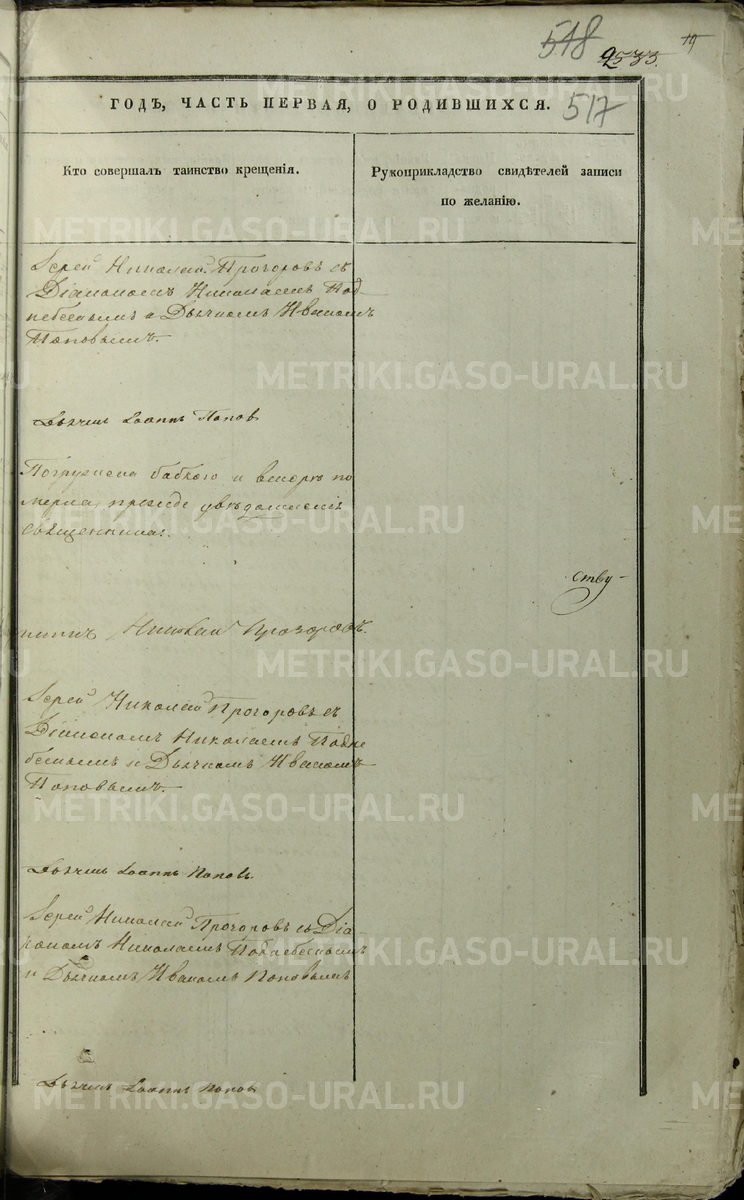 518
2533.
19
ГОДЪ, ЧАСТЬ ПЕРВАЯ, О РОДИВШИХСЯ.
517
Кто совершалъ таинство крещенія.
Рукоприкладство свидѣтелей записи
по желанію.
METRIKI.GASO-URAL.RU
Іерей Николай Прозоровъ съ
Діакономъ Николаемъ Под
небеснымъ и Дьячкомъ Иваномъ
Поповымъ.
Дьячекъ Іоаннъ Попов
Погружена бабкою и вскорѣ по
мерла, прежде увѣдомленія
священника:
ству
Николай Прозоровъ.
Іерей Николай Прозоровъ съ
Діакономъ Николаемъ Подне
беснымъ и Дьячкомъ Иваномъ
Поповымъ.
Дьячекъ Іоаннъ Поповъ.
Іерей Николай Прозоровъ съ Діа
кономъ Николаемъ Поднебеснымъ
и Дьячкомъ Иваномъ Поповымъ
Дьячекъ Іоаннъ Попов